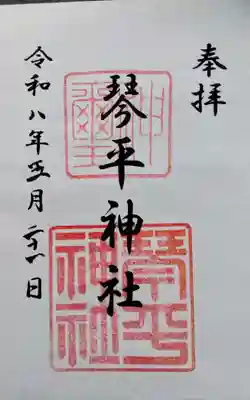 奉拝
琴平神社
令和八年五月二十一日
琴平
神社